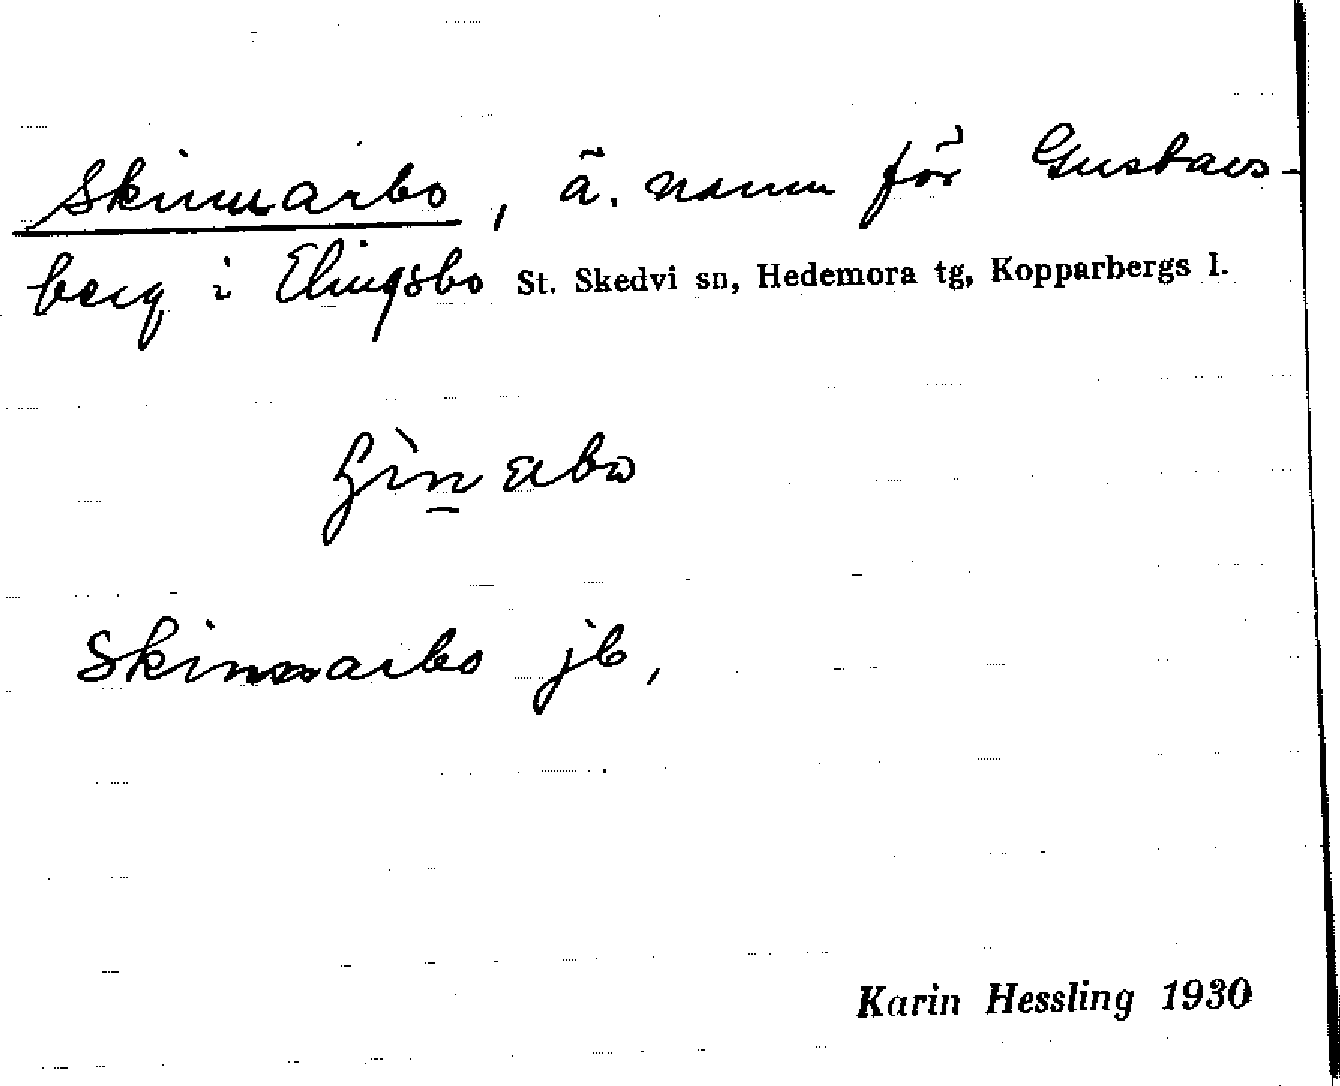 Skinnarbo, ä. namn för Gustavs-
berg i Elingsbo St. Skedvi sn, Hedemora tg, Kopparbergs l.
Skinnarbo jb,
Karin Hessling 1930